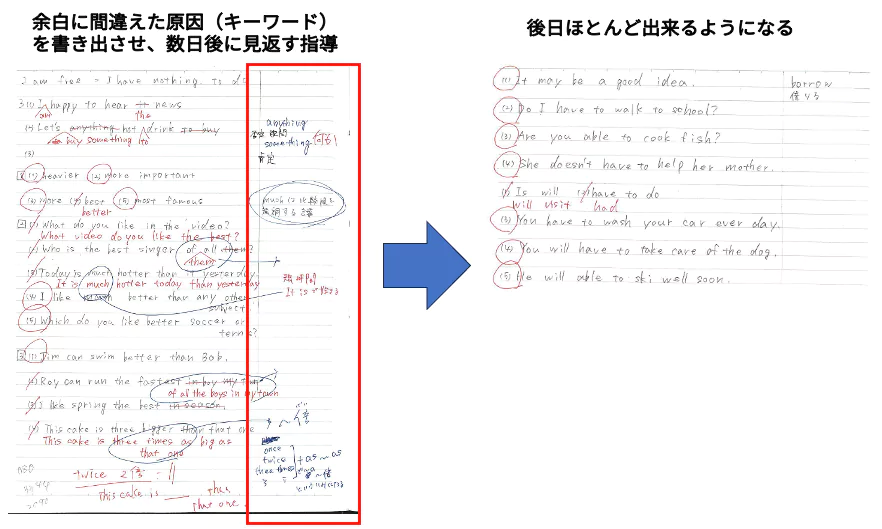 余白に間違えた原因（キーワード）
を書き出させ、数日後に見返す指導
後日ほとんど出来るようになる
I am free = I have nothing to do
3 (1) I happy to hear the news
am
the
(2) Let's anything hot drink to buy
buy something
(3)
anything
something
肯定
(1) heavier (2) more important
(3) more (4) best (5) most famous
better
much は比較級を
強調する言葉
(1) What do you like in the video?
What video do you like the best?
(2) Who is the best singer of all them?
them
(3) Today is much hotter than it yesterday.
It is much hotter today than yesterday
(4) I like much better than any other
subject.
It is で始まる
(5) Which do you like better soccer or
tennis?
(1) Jim can swim better than Bob.
(2) Roy can run the fastest in boy my town
of all the boys in my town
(3) I like spring the best in season.
(4) This cake is three bigger than that one
This cake is three times as big as
that one
～倍
once
twice
three times
+ as ～ as
twice 2倍
This cake is ___ than
that one.
(1) It may be a good idea.
borrow
借りる
(2) Do I have to walk to school?
(3) Are you able to cook fish?
(4) She doesn't have to help her mother.
(1) Is will (2) have to do
will visit had
(3) You have to wash your car ever day.
(4) You will have to take care of the dog.
(5) He will able to ski well soon.